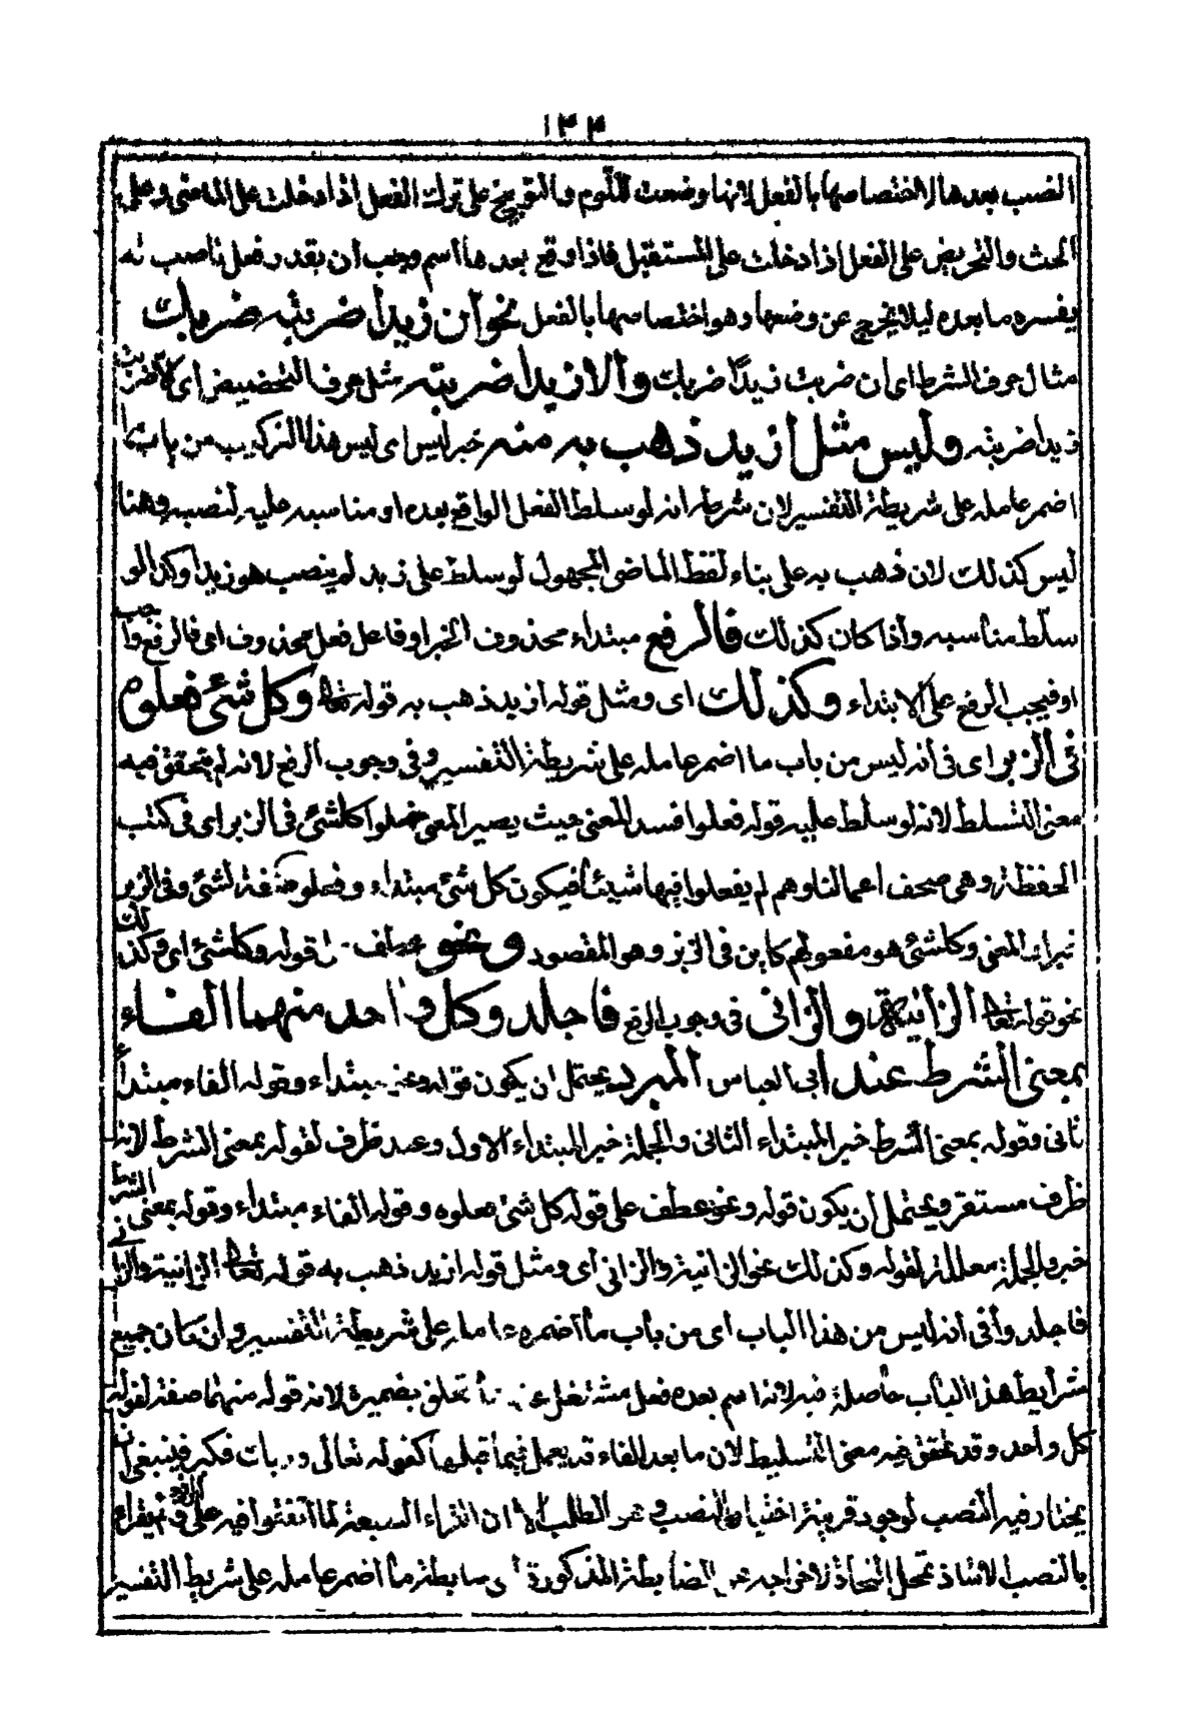 ١٣٣
النصب بعدها لاختصاصها بالفعل لانها وضعت للّوم والتوبيخ على ترك الفعل اذا دخلت على الماضى وعلى
الحث والتحريض على الفعل اذا دخلت على المستقبل فاذا وقع بعدها اسم وجب أن يقدر فعل ناصب له
يفسره ما بعده ليلا يخرج عن وضعها وهو اختصاصها بالفعل نحو ان زيدا ضربته ضربك
مثال حرف الشرط اى ان ضربت زيدًا ضربك وألا زيدا ضربته مثل حرف التحضيض اى الا ضربت
زيدا ضربته وليس مثل أزيد ذهب به منه خبر ليس اى ليس هذا التركيب من باب ما
اضمر عامله على شريطة التفسير لان شرطه انه لو سلط الفعل الواقع بعده او مناسبه عليه لنصبه وهنا
ليس كذلك لان ذهب به على بناء لفظ الماضى المجهول لو سلط على زيد لم ينصب هو زيدا وكذا لو
سلّط مناسبه وأذا كان كذلك فالرفع مبتداء محذوف الخبر او فاعل فعل محذوف اى فالرفع واجب
او فيجب الرفع على الابتداء وكذلك اى ومثل قوله ازيد ذهب به قوله تعا وكل شئ فعلوه
فى الزبر اى فى أنه ليس من باب ما اضمر عامله على شريطة التفسير وفى وجوب الرفع لانه لم يتحقق فيه
معنى التسلط لانه لو سلط عليه قوله فعلوا فسد المعنى حيث يصير المعنى فعلوا كل شئ فى الزبر اى فى كتب
الحفظة وهى صحف اعمالنا وهم لم يفعلوا فيها شيئًا فيكون كل شئ مبتداء وفعلوه صفة لشئ وفى الزبر
خبر المعنى وكل شئ هو مفعولهم كاين فى الزبر وهو المقصود ونحو عطف قوله وكل شئ اى وكذلك
نحو قوله تعا الزانية والزانى فى وجوب الرفع فاجلدوا كل واحد منهما الفاء
بمعنى الشرط عند ابى العباس المبرد يحتمل ان يكون قوله ونحو مبتداء وقوله الفاء مبتدأ
ثانى وقوله بمعنى الشرط خبر المبتداء الثانى والجملة خبر المبتداء الاول وعند ظرف لقوله بمعنى الشرط لانه
ظرف مستقر ويحتمل أن يكون قوله ونحو عطف على قوله كل شئ فعلوه وقوله الفاء مبتداء وقوله بمعنى الشرط
خبر والجملة معللة لقوله وكذلك نحو الزانية والزانى أى ومثل قوله ازيد ذهب به قوله تعا الزانية والزانى
فاجلدوا فى انه ليس من هذا الباب اى من باب ما أضمر عامله على شريطة التفسير وان كان جميع
شرايط هذا الباب حاصلة فيه لانه اسم بعده فعل مشتغل عنه تعلق بضميره لانه قوله منهما صفة لقوله
كل واحد وقد تحقق فيه معنى التسليط لان ما بعد الفاء قد يعمل فيما قبلها كقوله تعالى وربك فكبر فينبغى ان
يختار فيه النصب لوجود قرينة اختيار النصب وهى الطلب الا ان القراء السبعة لما اتفقوا فيه على الرفع ولم يقراء
بالنصب الا شاذ تمحل النحاة لاخراجه عن الضابطة المذكورة اى ضابطة ما أضمر عامله على شريط التفسير